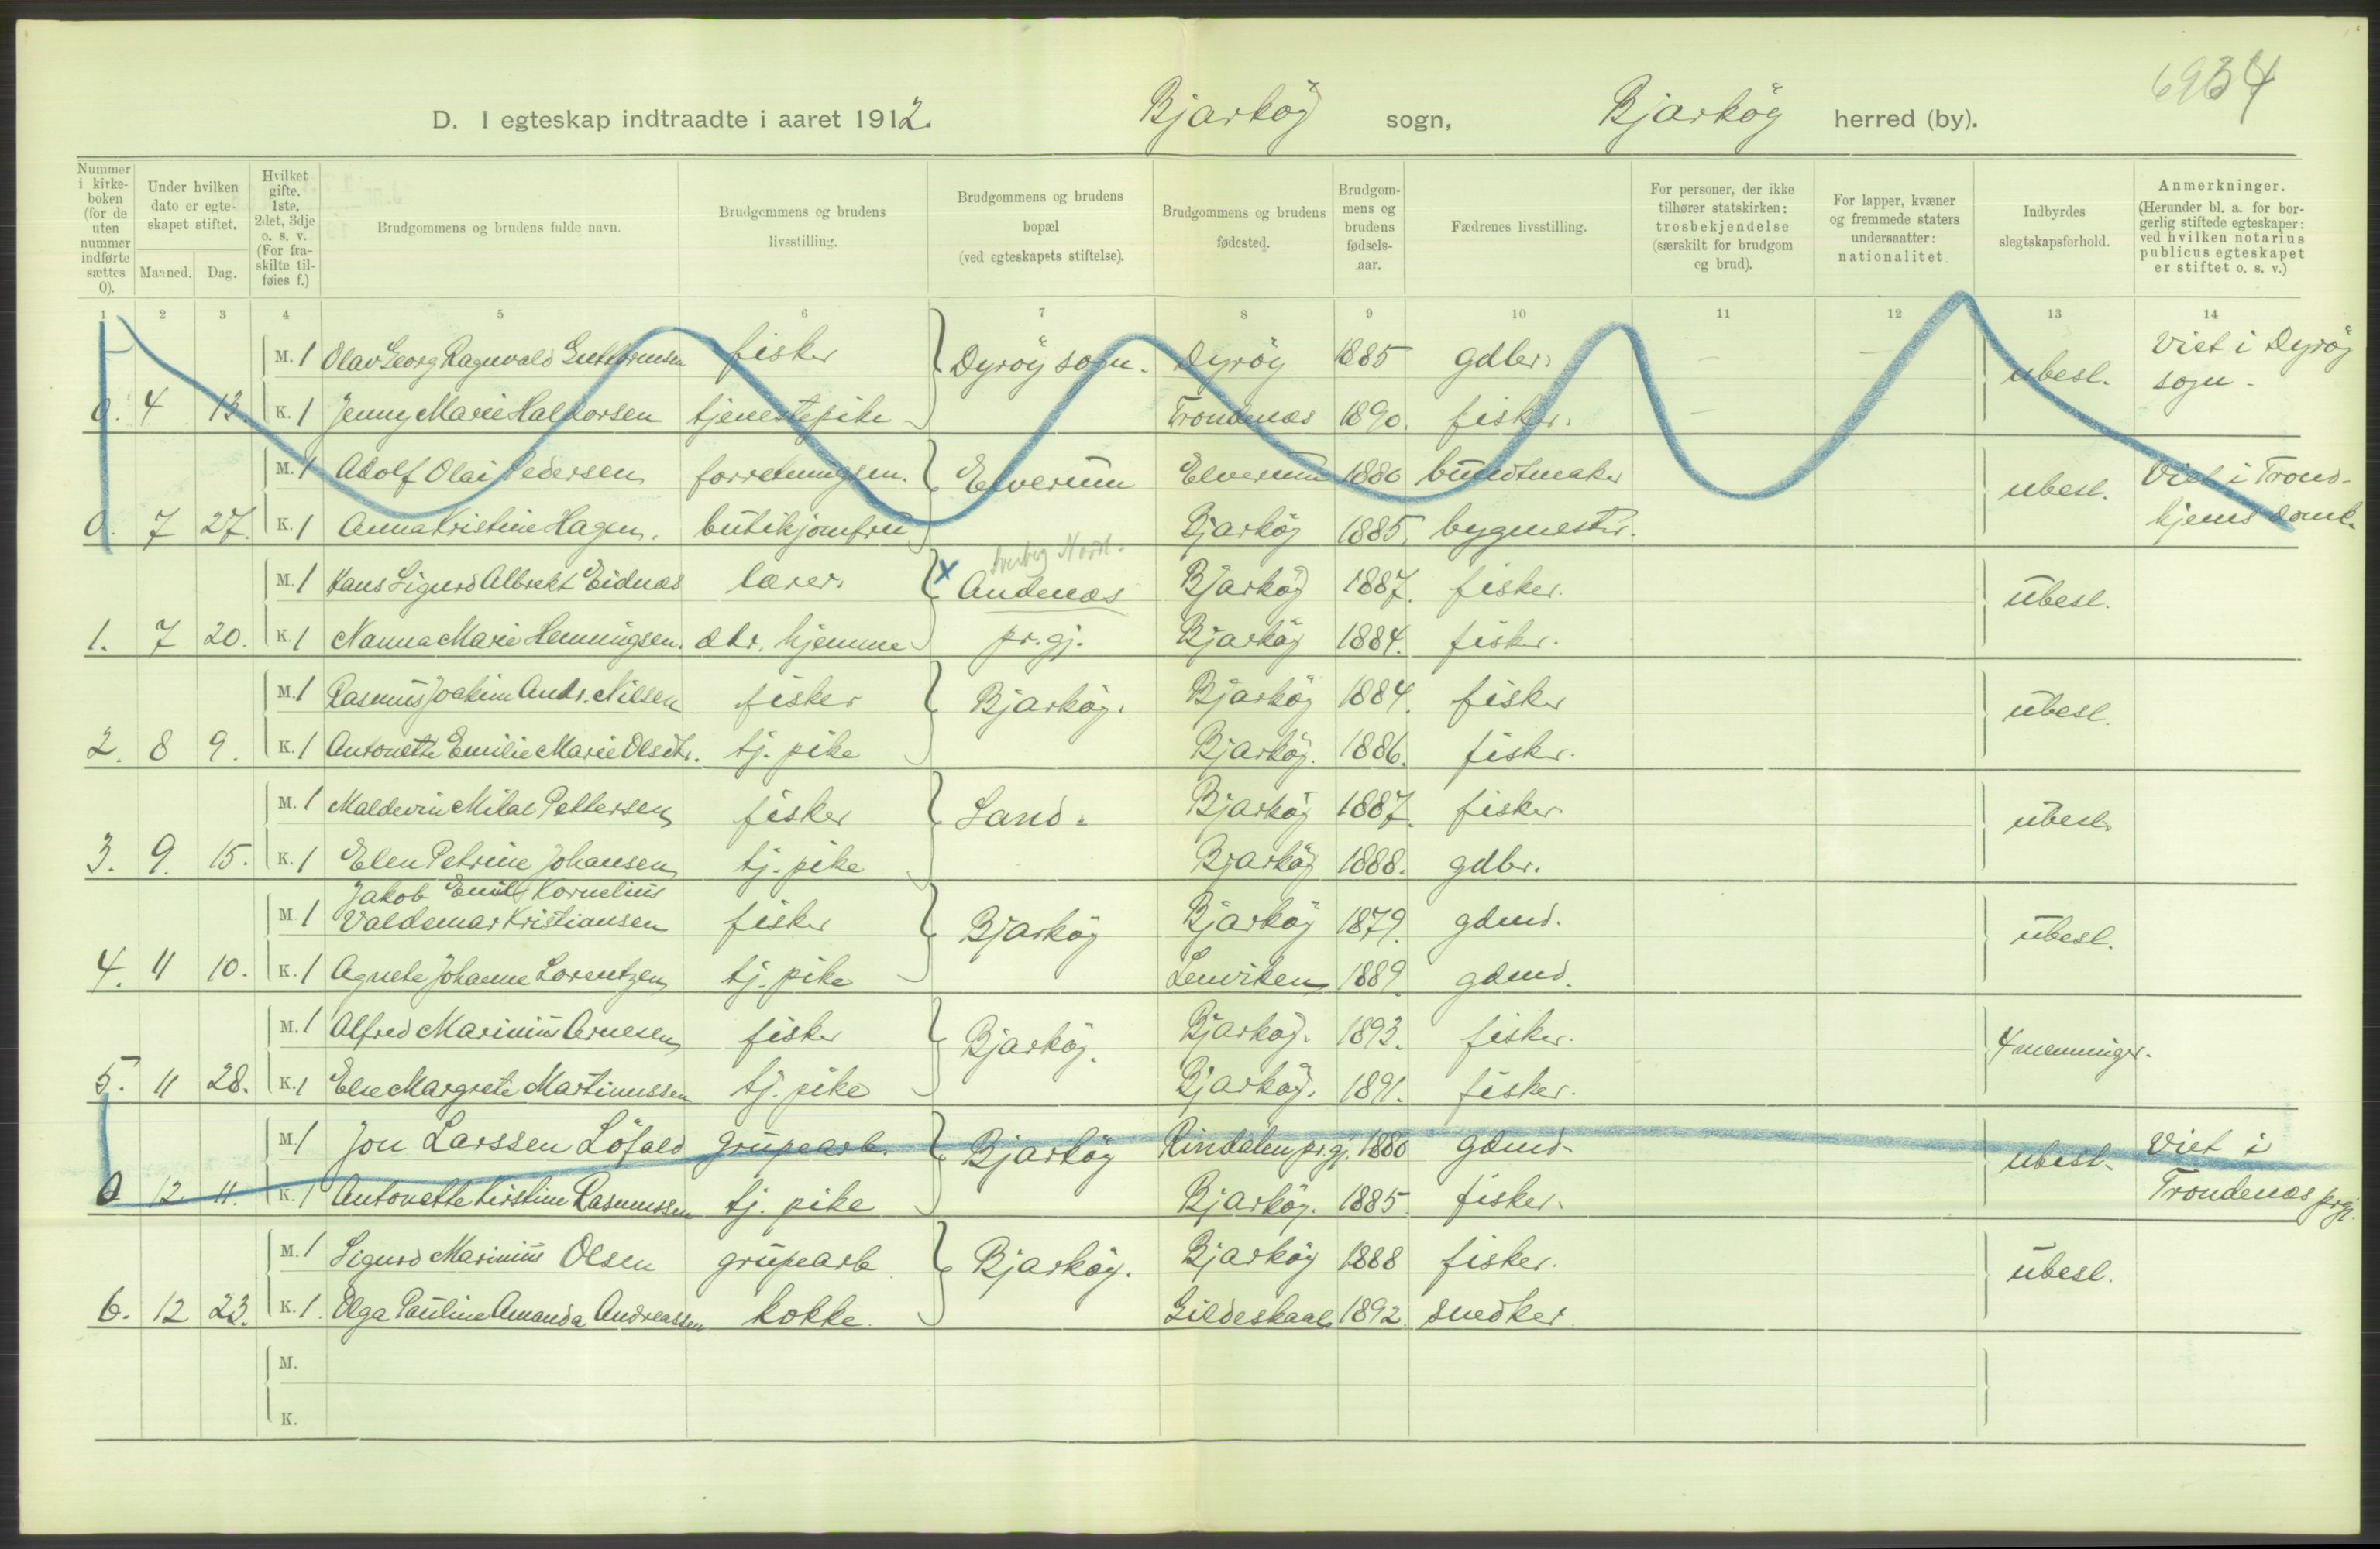 6934
D. I egteskap indtraadte i aaret 1912. Bjarköy sogn, Bjarköy herred (by).
Nummer i kirke-boken (for de uten nummer indførte sættes 0). Under hvilken dato er egte-skapet stiftet. Maaned. Dag. Hvilket gifte. 1ste, 2det, 3dje o. s. v. (For fra-skilte til-føies f.) Brudgommens og brudens fulde navn. Brudgommens og brudens livsstilling. Brudgommens og brudens bopæl (ved egteskapets stiftelse). Brudgommens og brudens fødested. Brudgom-mens og brudens fødsels-aar. Fædrenes livsstilling. For personer, der ikke tilhører statskirken: trosbekjendelse (særskilt for brudgom og brud). For lapper, kvæner og fremmede staters undersaatter: nationalitet Indbyrdes slegtskapsforhold. Anmerkninger. (Herunder bl. a. for bor-gerlig stiftede egteskaper: ved hvilken notarius publicus egteskapet er stiftet o. s. v.)
1 2 3 4 5 6 7 8 9 10 11 12 13 14
M. 1 Olav Georg Ragnvald Guttormsen fisker Dyröy sogn. Dyröy 1885 gdbr. — — ubesl. Viet i Dyröy sogn.
0. 4 13. K. 1 Jenny Marie Haldorsen tjenestepike Trondenæs 1890. fisker. —
M. 1 Adolf Olai Pedersen forretningsm. Elverum Elverum 1886 bundtmaker ubesl. Viet i Trond-hjems domk.
0. 7 27. K. 1 Anna Kristine Hagen. butikjomfru Bjarköy 1885. bygmester.
M. 1 Hans Sigurd Albrekt Eidnæs lærer. x Andenæs Nord. Bjarköy 1887. fisker. ubesl.
1. 7 20. K. 1 Nanna Marie Henningsen. dtr. hjemme pr.gj. Bjarköy 1884. fisker.
M. 1 Rasmus Joakim Andr. Nilsen fisker Bjarköy. Bjarköy 1884. fisker ubesl.
2. 8 9. K. 1 Antonette Emilie Marie Olsdtr. tj. pike Bjarköy. 1886. fisker.
M. 1 Maldevin Mikal Pettersen fisker Sand. Bjarköy 1887. fisker. ubesl.
3. 9. 15. K. 1 Elen Petrine Johansen tj. pike Bjarköy 1888. gdbr.
Jakob Emil Kornelius
M. 1 Valdemar Kristiansen fisker Bjarköy Bjarköy 1879. gdmd. ubesl.
4. 11 10. K. 1 Agnete Johanne Lorentzen tj. pike Lenviken 1889. gdmd.
M. 1 Alfred Marinius Arnesen fisker Bjarköy. Bjarköy. 1893. fisker. 4menninger.
5. 11 28. K. 1 Else Margrete Martinussen tj. pike Bjarköy. 1891. fisker.
M. 1 Jon Larssen Löfald grupearb. Bjarköy Rindalen pr.gj. 1880 gdmd. ubesl. Viet i
0 12 11. K. 1 Antonette Kirstine Rasmussen tj. pike Bjarköy. 1885. fisker. Trondenæs prgj.
M. 1 Sigurd Marinius Olsen grupearb. Bjarköy. Bjarköy 1888 fisker. ubesl.
6. 12 23. K. 1. Olga Pauline Amanda Andreassen kokke. Gildeskaal 1892. snedker.
M.
K.